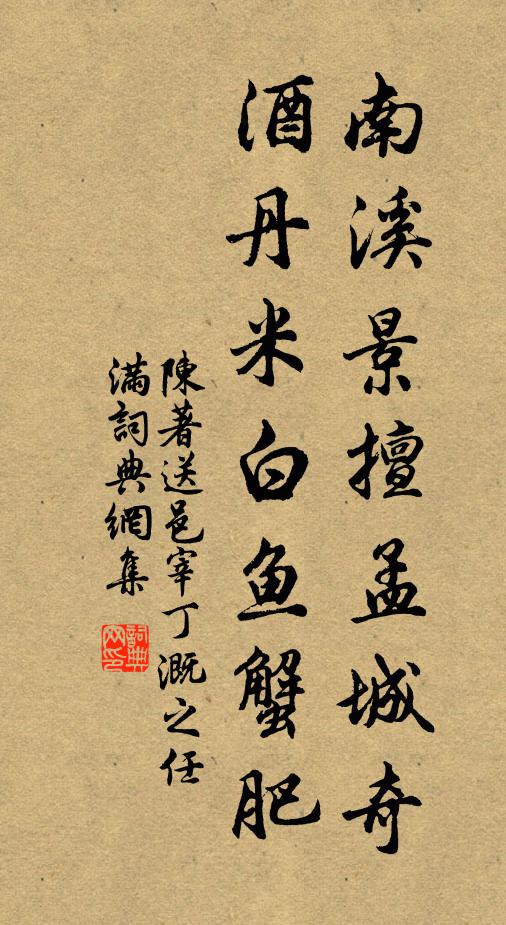 南溪景擅孟城奇
酒丹米白鱼蟹肥
陳著送邑宰丁溉之任
滿詞典網集
詞典
网印